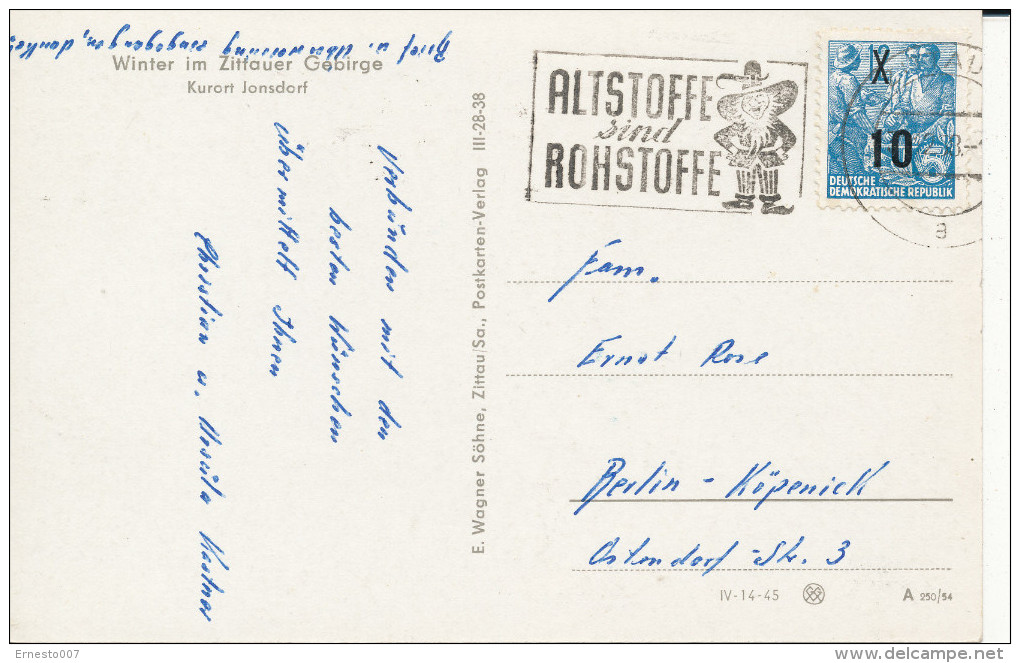 Brief u. Überweisung eingegangen, danke!
Winter im Zittauer Gebirge
Kurort Jonsdorf
Verbunden mit den
besten Wünschen
übermittelt Ihnen
Christian u. Ursula Kästner
E. Wagner Söhne, Zittau/Sa., Postkarten-Verlag III-28-38
ALTSTOFFE
sind
ROHSTOFFE
X
10
DEUTSCHE
DEMOKRATISCHE REPUBLIK
a
Fam.
Ernst Rose
Berlin - Köpenick
Ostendorf-Str. 3
IV-14-45
A 250/54
Ernesto007
www.delcampe.net